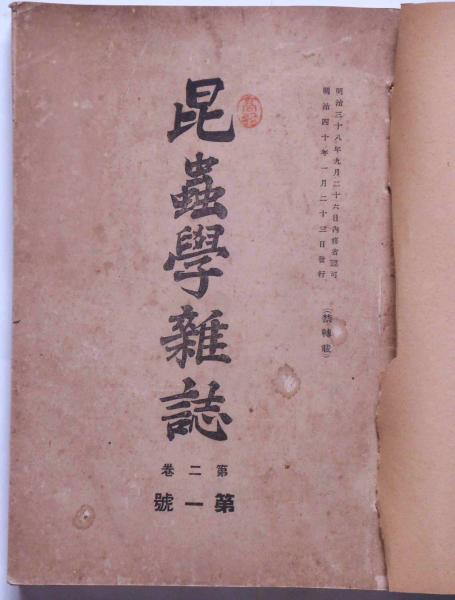 明治三十八年九月二十六日內務省認可
明治四十年一月二十三日發行
(禁轉載)
昆蟲學雜誌
第二卷
第一號